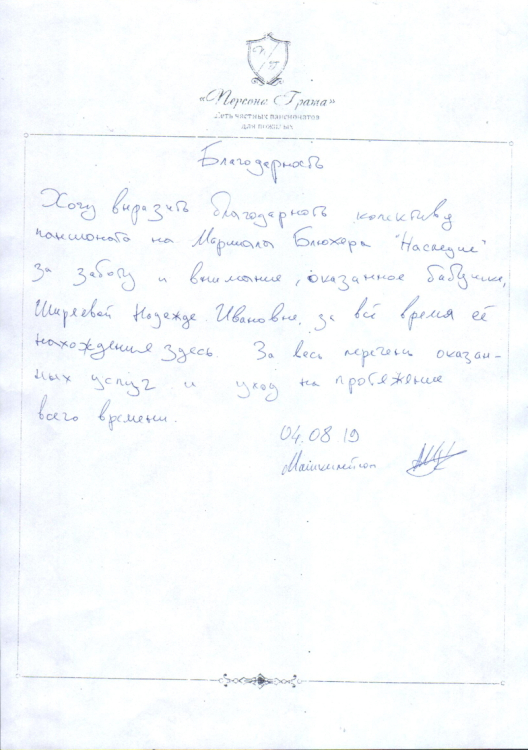 «Персона Грата»
Сеть частных пансионатов
для пожилых
Благодарность
Хочу выразить благодарность колективу
пансионата на Маршала Блюхера "Наследие"
за заботу и внимание, оказанное бабушке,
Надежде Ивановне, за всё время её
нахождения здесь. За весь перечень оказан-
ных услуг и уход на протяжение
всего времени.
04.08.19